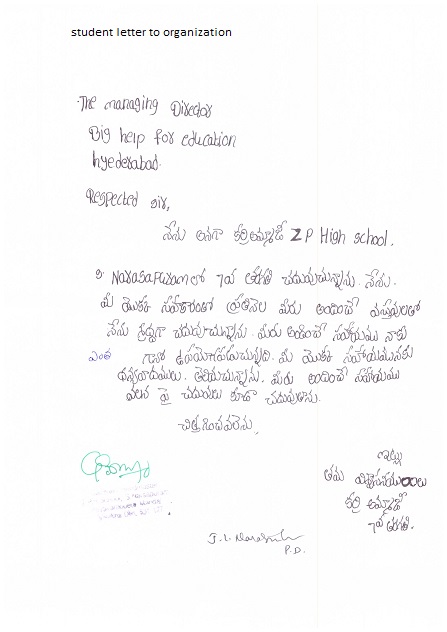 student letter to organization
The managing Director
Big help for education
hyederabad.
Respected sir,
నేను అనగా కర్రి అమ్మాజీ ZP High school.
S. Narasapuram లో 7వ తరగతి చదువుచున్నాను. నేను.
మీ యొక్క సహకారంతో ప్రతినెల మీరు అందించే వస్తువులతో
నేను శ్రద్ధగా చదువుచున్నాను. మీరు అందించే సహాయము నాకు
ఎంత గానో ఉపయోగపడుచున్నది. మీ యొక్క సహాయమునకు
ధన్యవాదములు. తెలియచున్నాను. మీరు అందించే సహాయము
వలన పై చదువులు కూడా చదువుతాను.
చిత్తగించవలెను.
ఇట్లు
తమ
కర్రి అమ్మాజీ
7వ తరగతి.
P.D.